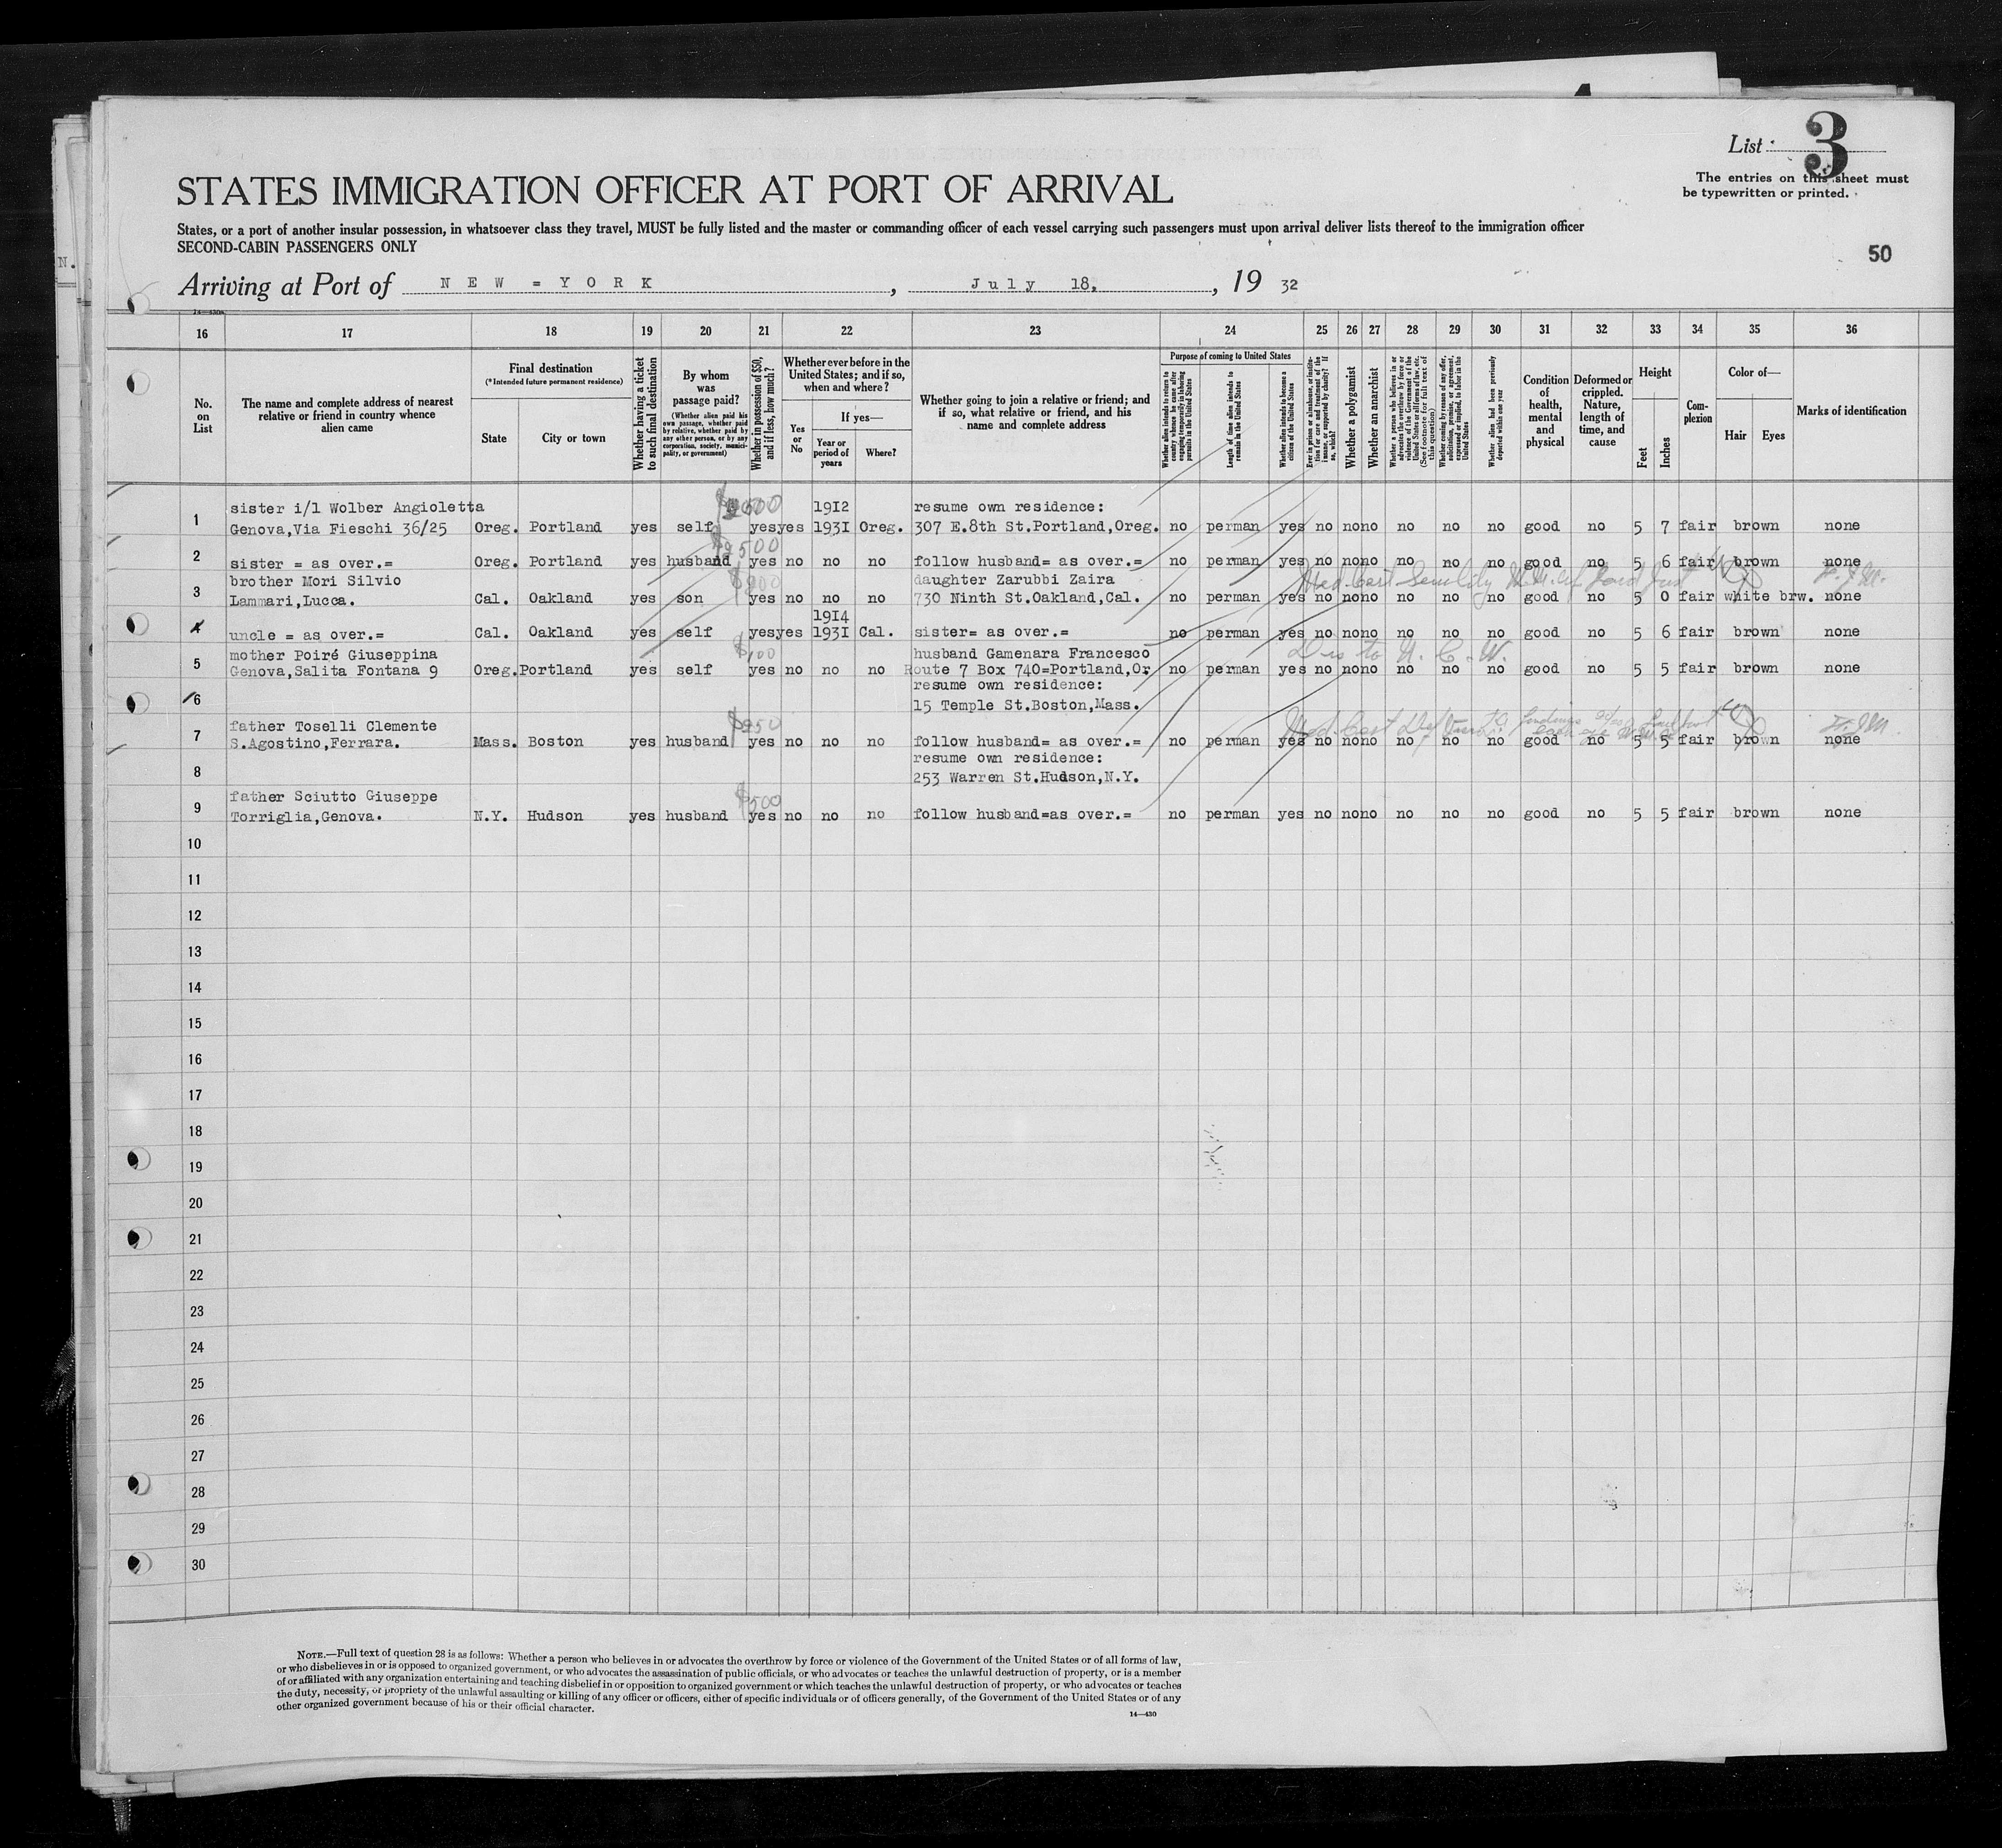 List 3
The entries on this sheet must
be typewritten or printed.
STATES IMMIGRATION OFFICER AT PORT OF ARRIVAL
States, or a port of another insular possession, in whatsoever class they travel, MUST be fully listed and the master or commanding officer of each vessel carrying such passengers must upon arrival deliver lists thereof to the immigration officer
SECOND-CABIN PASSENGERS ONLY
50
N.
Arriving at Port of NEW=YORK, July 18, 19 32
16 17 18 19 20 21 22 23 24 25 26 27 28 29 30 31 32 33 34 35 36
No. on List
The name and complete address of nearest relative or friend in country whence alien came
Final destination
(*Intended future permanent residence)
State
City or town
Whether having a ticket to such final destination
By whom was passage paid?
(Whether alien paid his own passage, whether paid by relative, whether paid by any other person, or by any corporation, society, municipality, or government)
Whether in possession of $50, and if less, how much?
Whether ever before in the United States; and if so, when and where?
Yes or No
If yes—
Year or period of years
Where?
Whether going to join a relative or friend; and if so, what relative or friend, and his name and complete address
Purpose of coming to United States
Whether alien intends to return to country whence he came after engaging temporarily in laboring pursuits in the United States
Length of time alien intends to remain in the United States
Whether alien intends to become a citizen of the United States
Ever in prison or almshouse, or institution for care and treatment of the insane, or supported by charity? If so, which?
Whether a polygamist
Whether an anarchist
Whether a person who believes in or advocates the overthrow by force or violence of the Government of the United States or all forms of law, etc. (See footnote for full text of this question)
Whether coming by reason of any offer, solicitation, promise, or agreement, expressed or implied, to labor in the United States
Whether alien had been previously deported within one year
Condition of health, mental and physical
Deformed or crippled. Nature, length of time, and cause
Height
Feet
Inches
Complexion
Color of—
Hair
Eyes
Marks of identification
sister i/l Wolber Angioletta 1912 resume own residence:
1 Genova,Via Fieschi 36/25 Oreg. Portland yes self yes yes 1931 Oreg. 307 E.8th St.Portland,Oreg. no perman yes no no no no no no good no 5 7 fair brown none
$2500
2 sister = as over.= Oreg. Portland yes husband yes no no no follow husband= as over.= no perman yes no no no no no no good no 5 6 fair brown none
brother Mori Silvio daughter Zarubbi Zaira
3 Lammari,Lucca. Cal. Oakland yes son yes no no no 730 Ninth St.Oakland,Cal. no perman yes no no no no no no good no 5 0 fair white brw. none
1914
4 uncle = as over.= Cal. Oakland yes self yes yes 1931 Cal. sister= as over.= no perman yes no no no no no no good no 5 6 fair brown none
mother Poiré Giuseppina $100 husband Gamenara Francesco
5 Genova,Salita Fontana 9 Oreg.Portland yes self yes no no no Route 7 Box 740=Portland,Or. no perman yes no no no no no no good no 5 5 fair brown none
resume own residence:
6 15 Temple St.Boston,Mass.
father Toselli Clemente $250
7 S.Agostino,Ferrara. Mass. Boston yes husband yes no no no follow husband= as over.= no perman yes no no no no no no good no 5 5 fair brown none
resume own residence:
8 253 Warren St.Hudson,N.Y.
father Sciutto Giuseppe $500
9 Torriglia,Genova. N.Y. Hudson yes husband yes no no no follow husband=as over.= no perman yes no no no no no no good no 5 5 fair brown none
10
11
12
13
14
15
16
17
18
19
20
21
22
23
24
25
26
27
28
29
30
NOTE.—Full text of question 28 is as follows: Whether a person who believes in or advocates the overthrow by force or violence of the Government of the United States or of all forms of law,
or who disbelieves in or is opposed to organized government, or who advocates the assassination of public officials, or who advocates or teaches the unlawful destruction of property, or is a member
of or affiliated with any organization entertaining and teaching disbelief in or opposition to organized government or which teaches the unlawful destruction of property, or who advocates or teaches
the duty, necessity, or propriety of the unlawful assaulting or killing of any officer or officers, either of specific individuals or of officers generally, of the Government of the United States or of any
other organized government because of his or their official character.
14—430